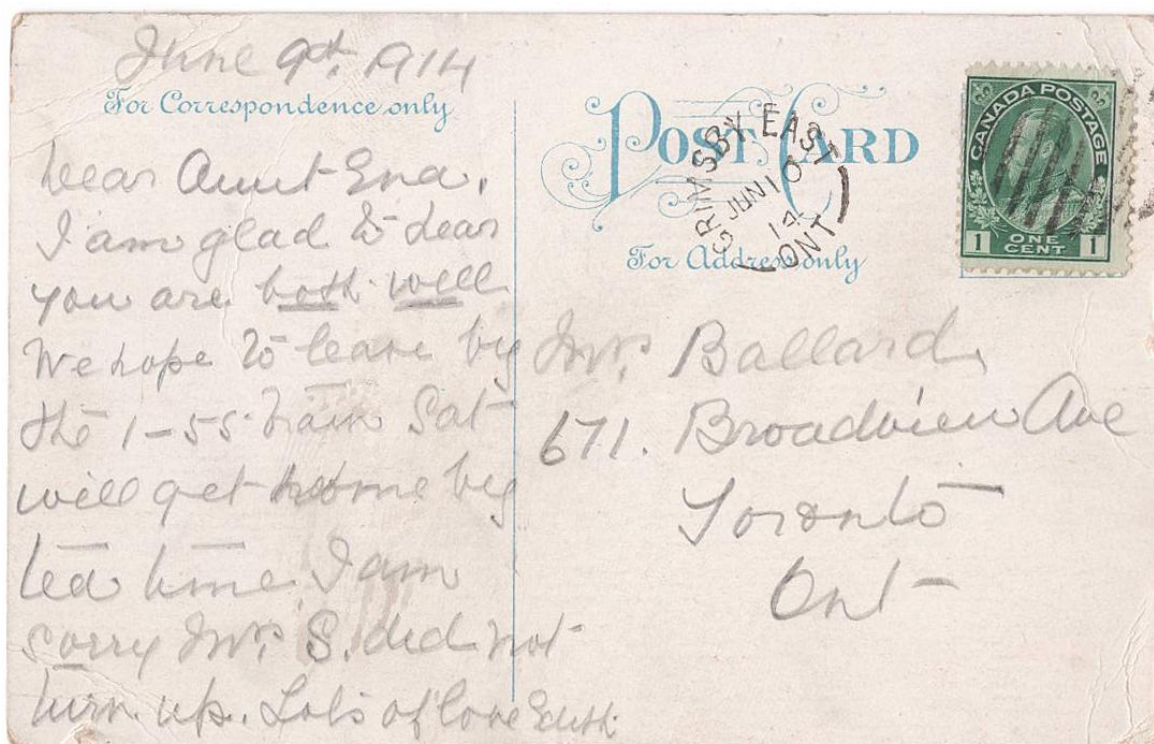 June 9th, 1914
For Correspondence only
Dear Aunt Ena.
I am glad to hear
you are both well
We hope to leave by
the 1-55 train Sat
will get home by
tea time. I am
sorry Mrs S. did not
turn up. Lots of love Edith
POST CARD
GRIMSBY EAST
JUN 10
14
ONT
For Address only
CANADA POSTAGE
1 ONE CENT 1
Mrs. Ballard
671. Broadview Ave
Toronto
Ont